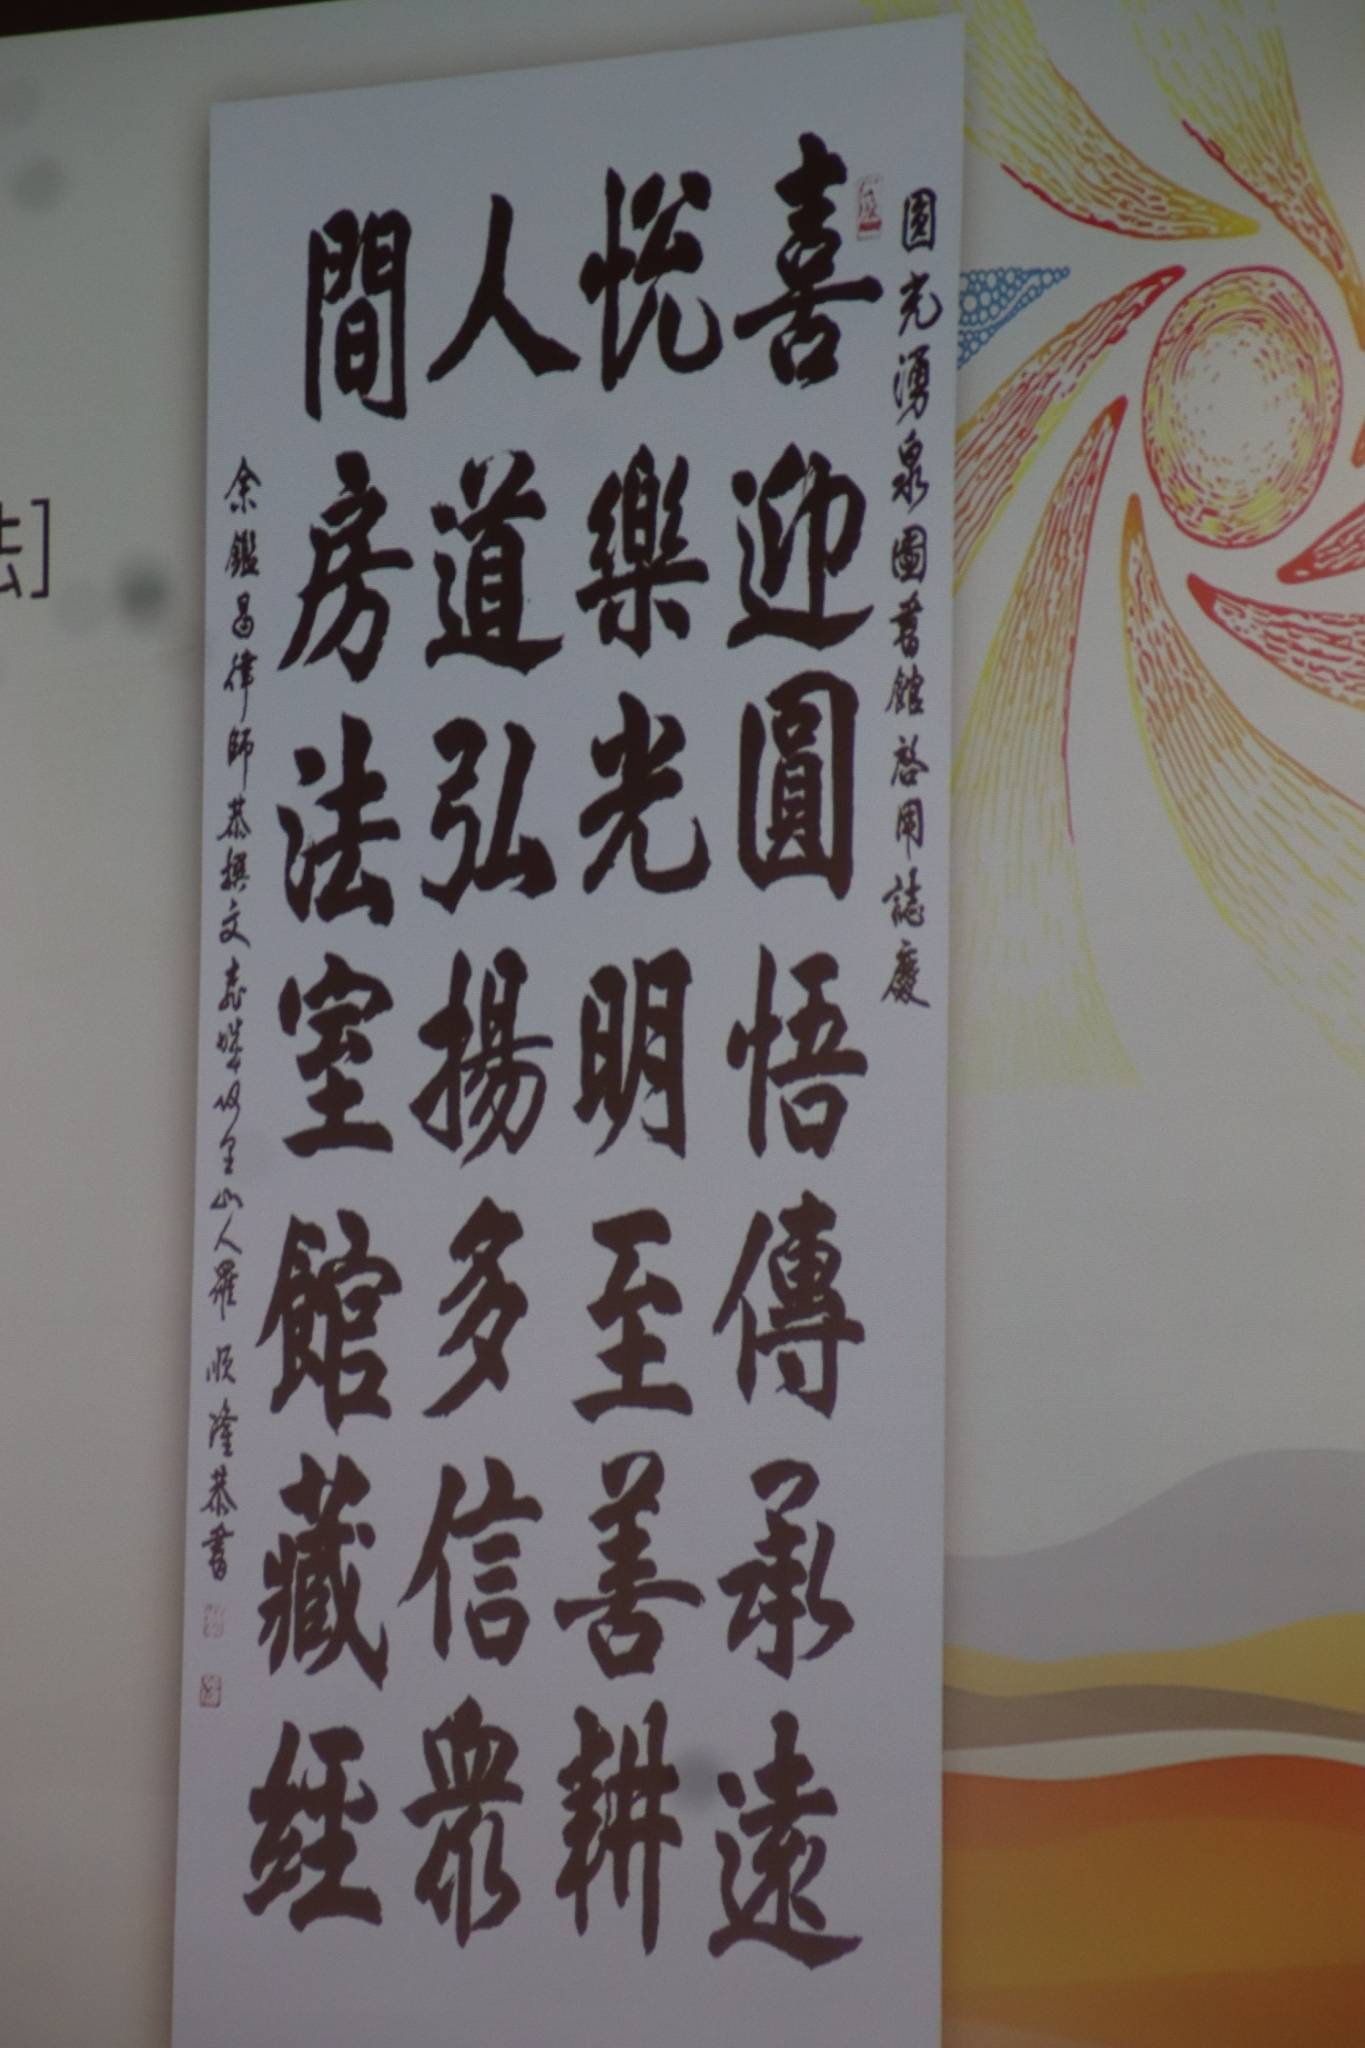 圓光湧泉圖書館啓用誌慶
喜迎圓悟傳承遠
悦樂光明至善耕
人道弘揚多信眾
間房法室館藏經
余鑑昌律師恭撰文 山人羅順隆恭書